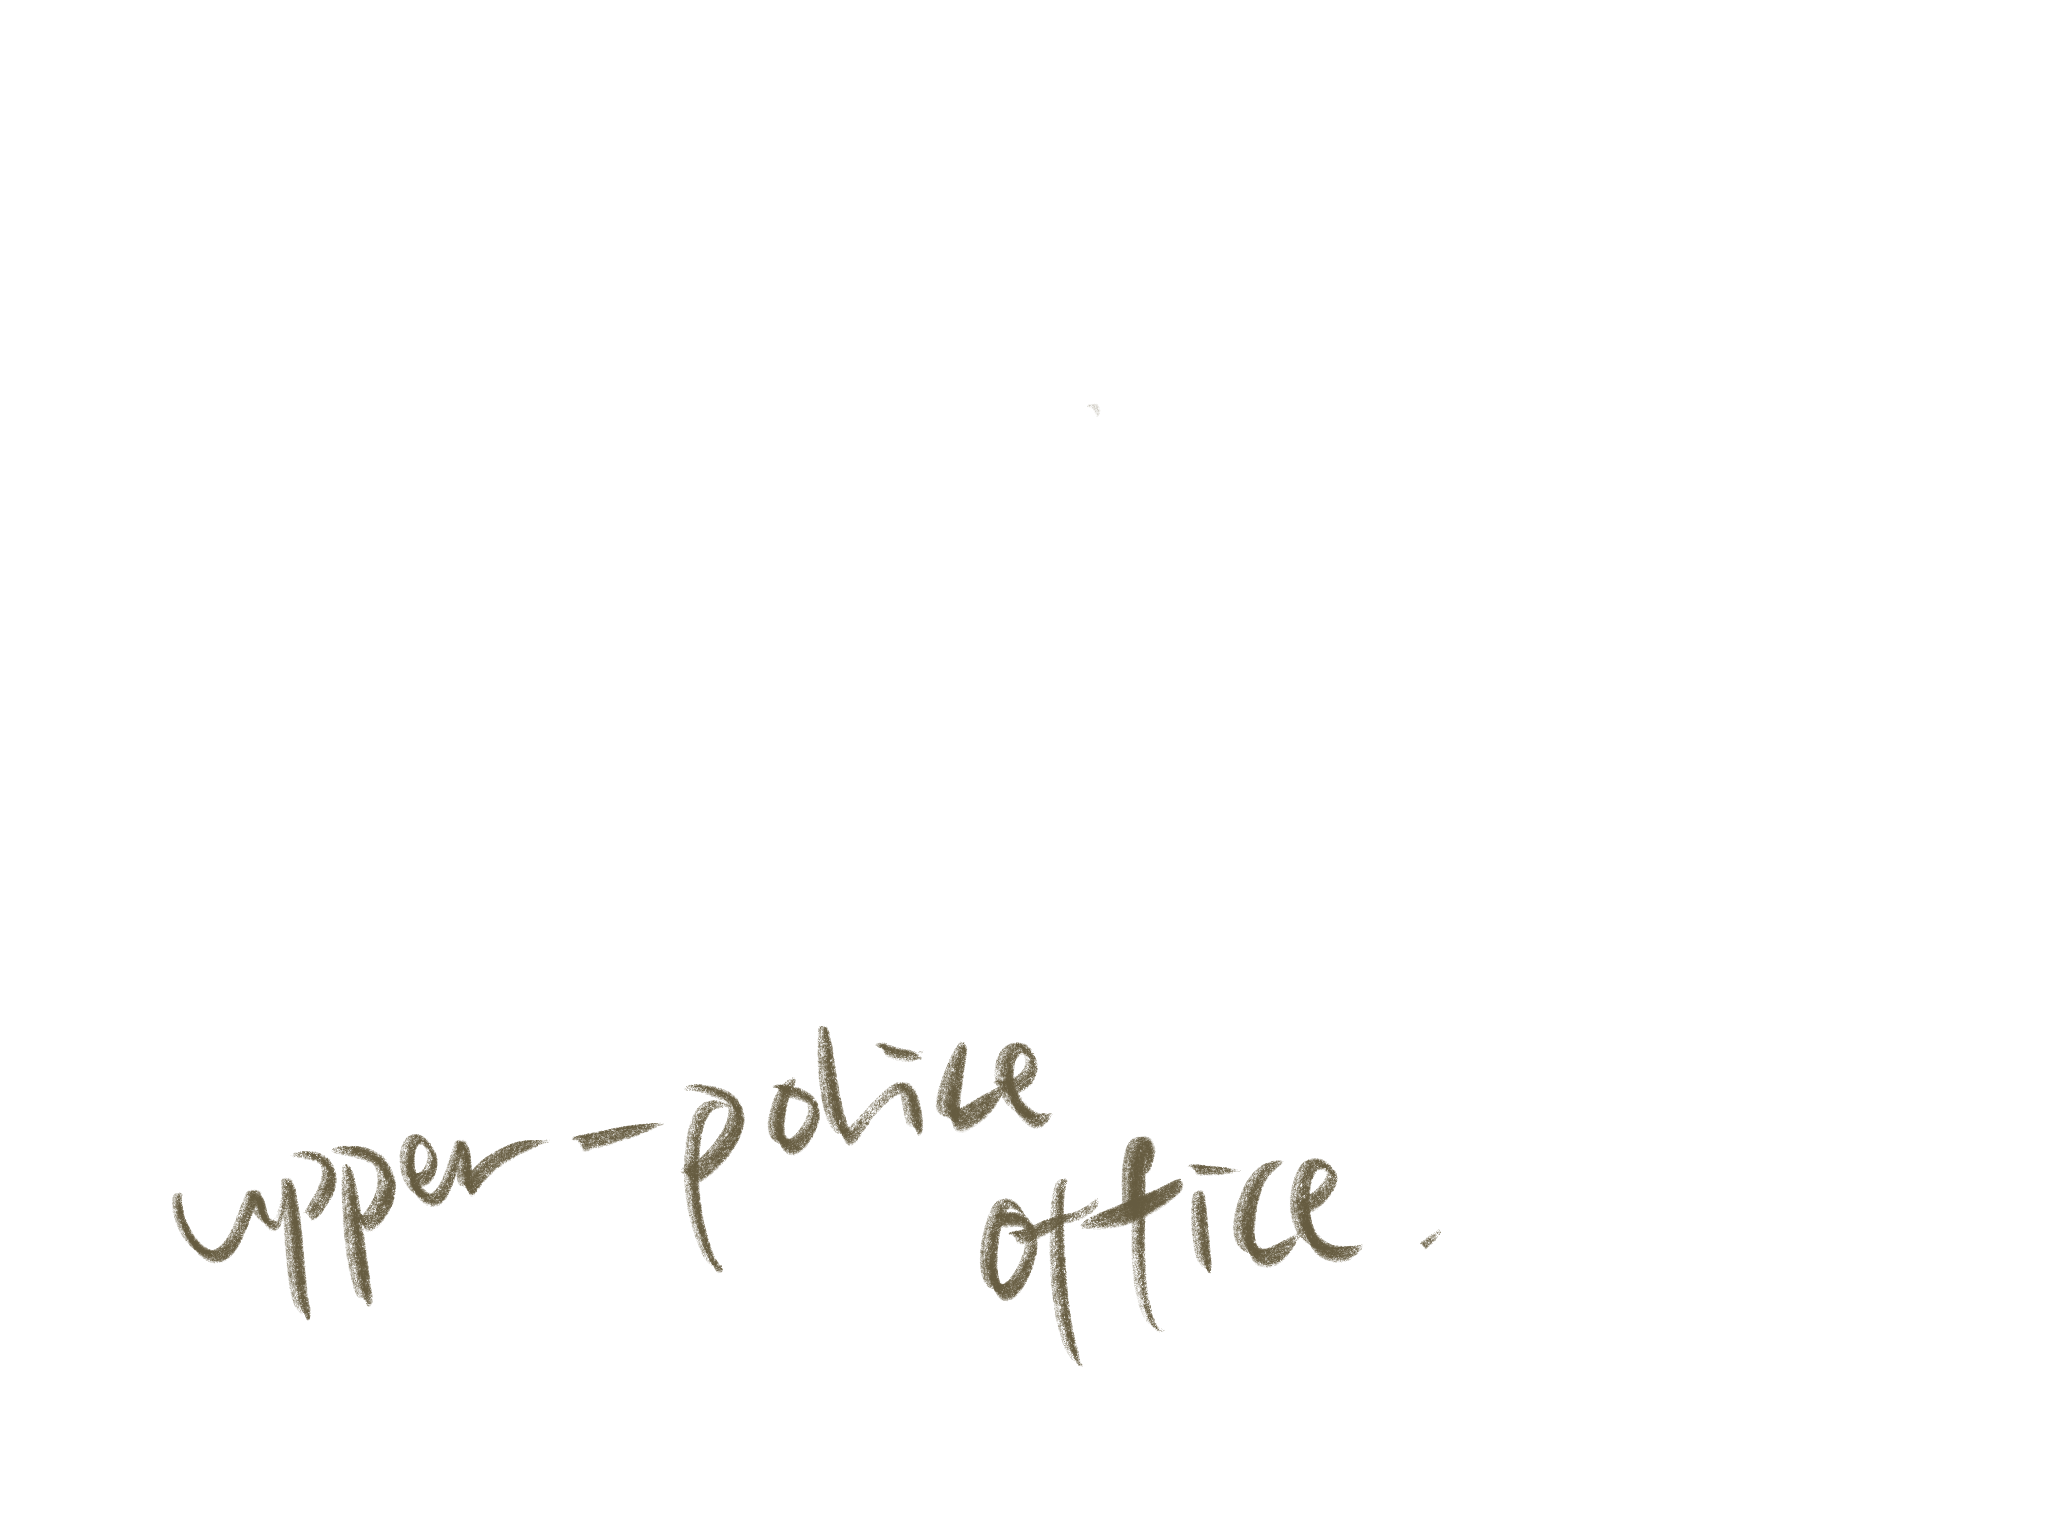 upper-police
office.